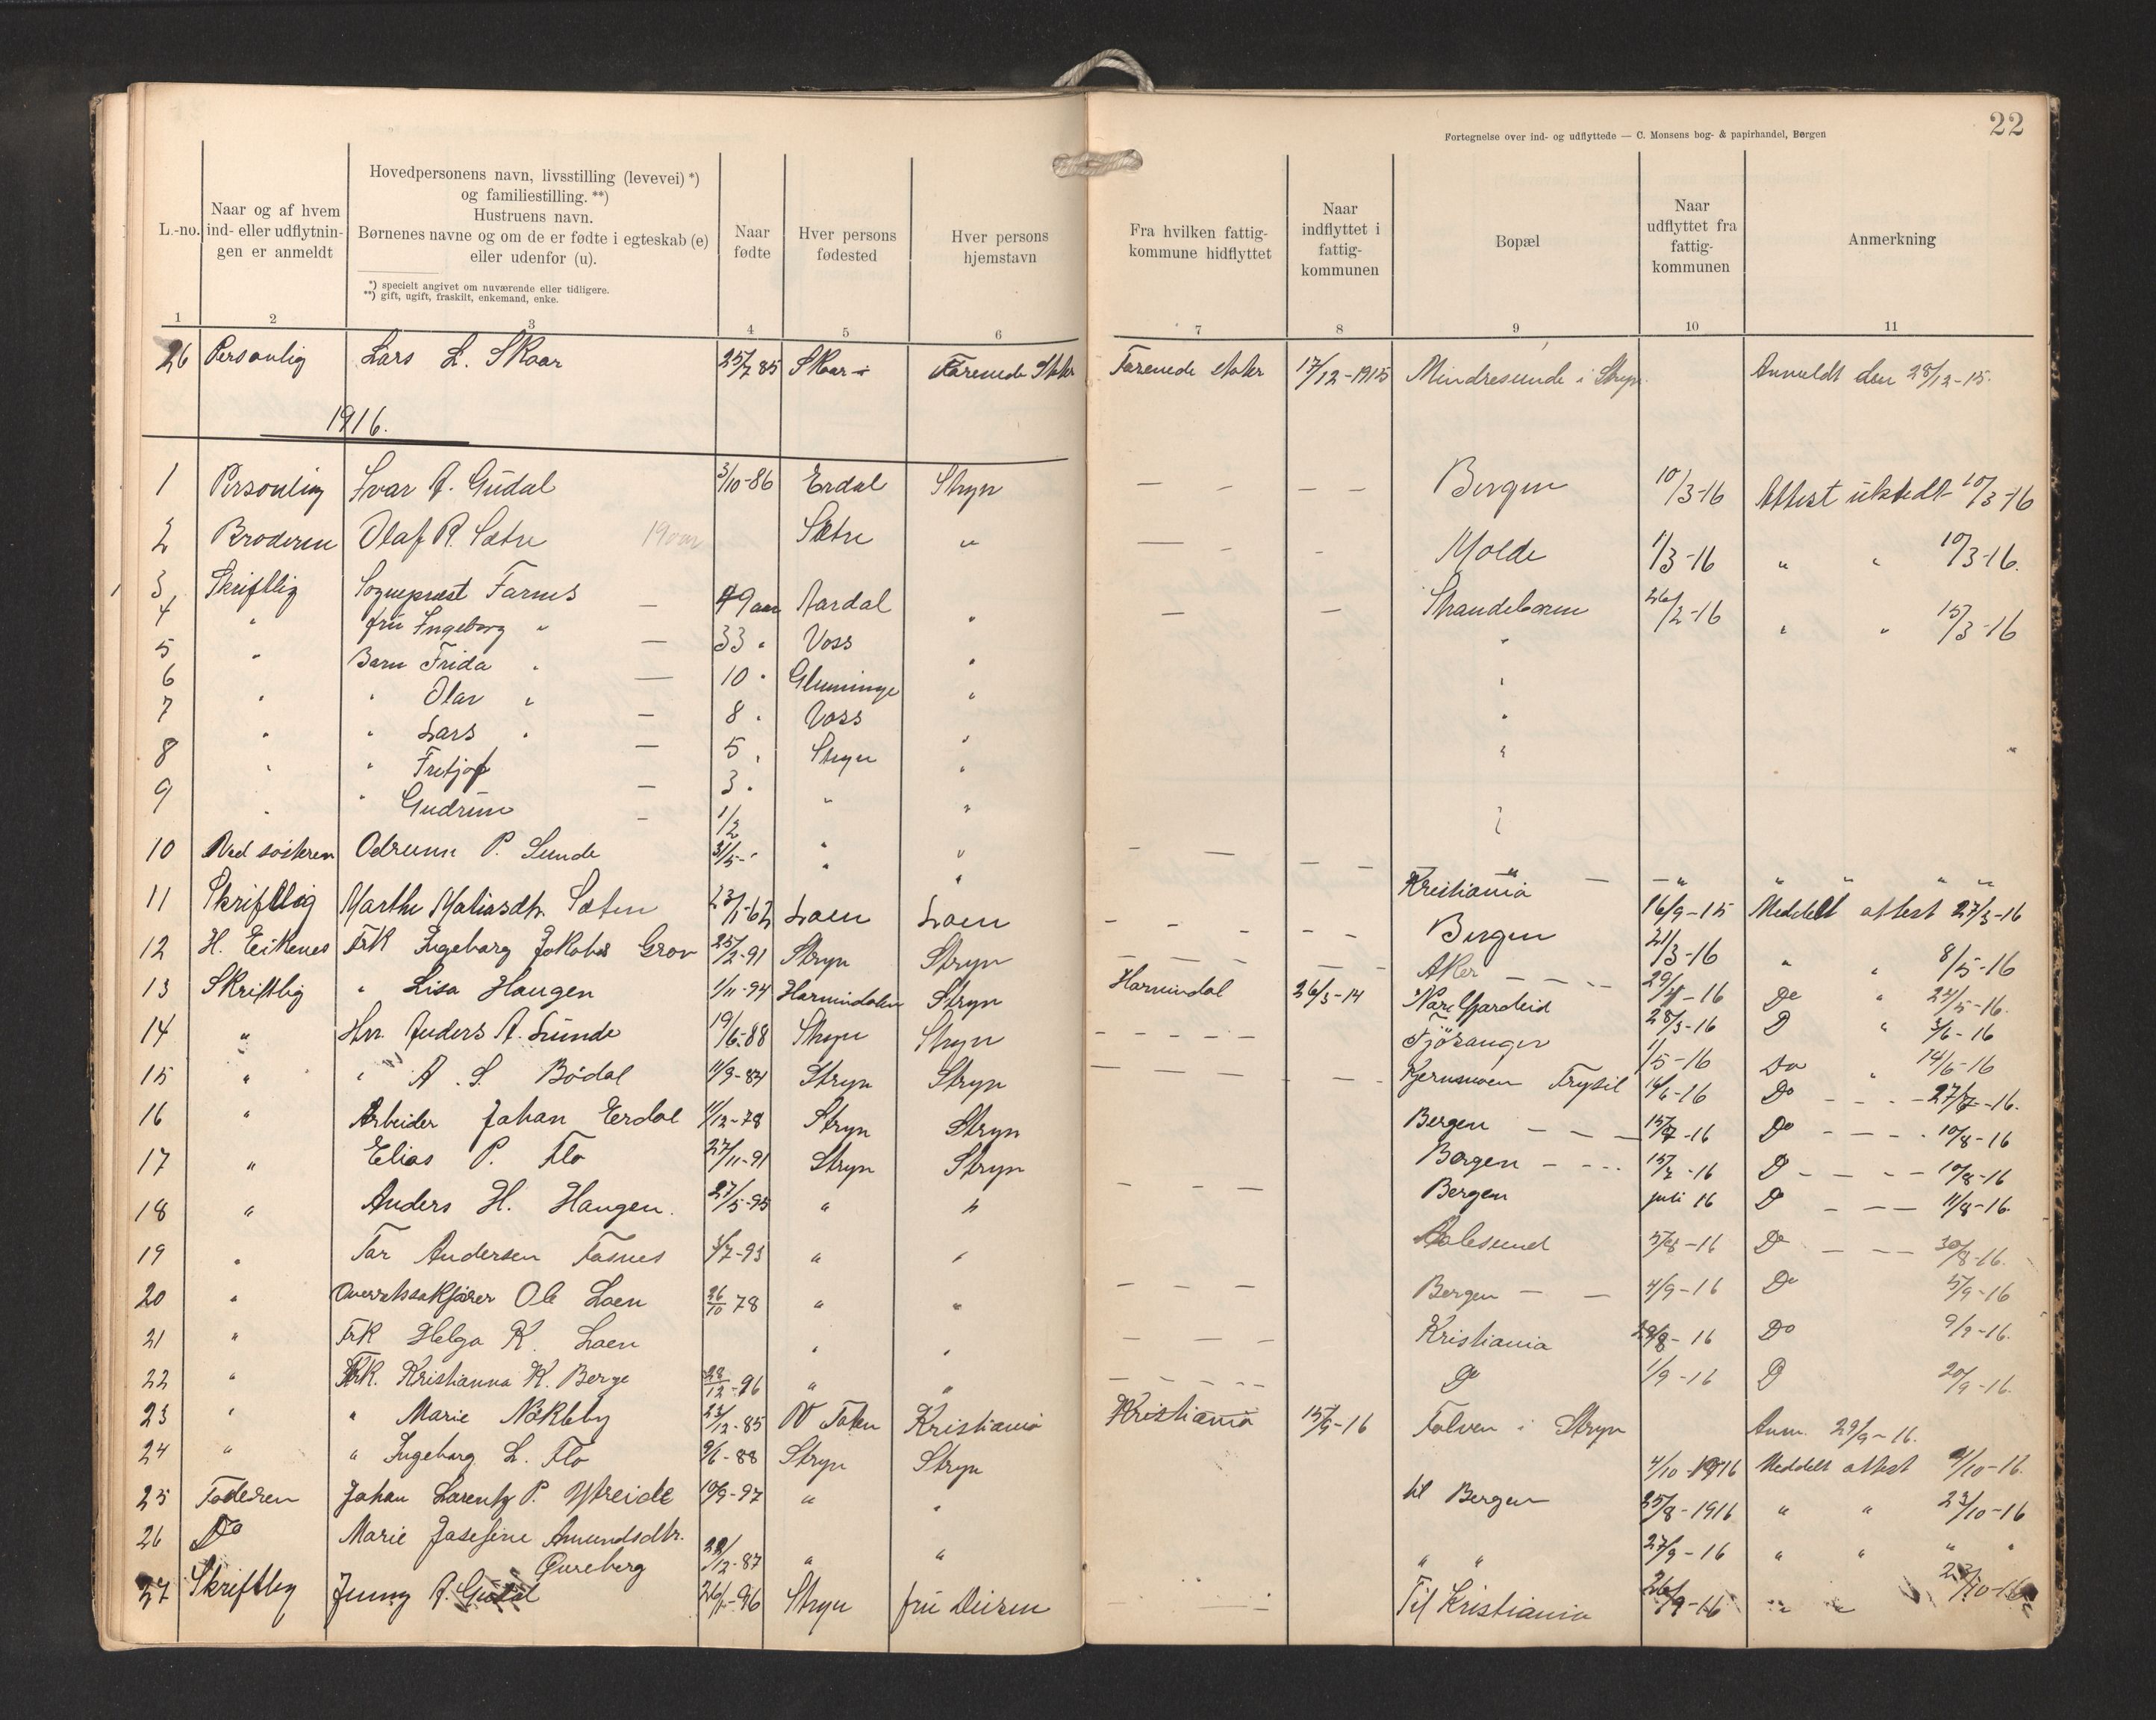 22
Fortegnelse over ind- og udflyttede — C. Monsens bog- & papirhandel, Bergen
L.-no.
Naar og af hvem
ind- eller udflytnin-
gen er anmeldt
Hovedpersonens navn, livsstilling (levevei) *)
og familiestilling. **)
Hustruens navn.
Børnenes navne og om de er fødte i egteskab (e)
eller udenfor (u).
*) specielt angivet om nuværende eller tidligere.
**) gift, ugift, fraskilt, enkemand, enke.
Naar
fødte
Hver persons
fødested
Hver persons
hjemstavn
Fra hvilken fattig-
kommune hidflyttet
Naar
indflyttet i
fattig-
kommunen
Bopæl
Naar
udflyttet fra
fattig-
kommunen
Anmerkning
1 2 3 4 5 6 7 8 9 10 11
26 Personlig Lars L. Skaar 25/7 85 Skaar Forenede Stater Forenede stater 17/12-1915 Mindresunde i Stryn Anmeldt den 28/12-15.
1916.
1 Personlig Ivar A. Gudal 3/10-86 Erdal Stryn — - — — Bergen 10/3-16 Attest utstedt 10/3-16
2 Broderen Olaf R. Sætre 19 aar Sætre " — - - Molde 1/3-16 " " 10/3-16.
3 Skriftlig Sogneprest Farnes — 49 aar Aardal " — — Strandebarm 26/2-16 " " 15/3-16
4 " fru Ingeborg " — 33 " Voss " "
5 " Barn Frida " — 10 " "
6 " " Olav " — 8 " Voss " "
7 " " Lars " — 5 " Stryn " "
8 " " Fritjof — 3 " " " "
9 " " Gudrun - 1/2 " "
10 Ved søstren Odrunn P. Sunde " " Kristiania — " " " " "
11 Skriftlig Marthe Matiasdtr. Sæten 23/1-62 Loen Loen - - - - - Bergen 16/9-15 Meddelt attest 27/3-16
12 H. Eikenes Frk Ingeborg Jakobs Grov 25/2-91 Stryn Stryn — — — — - Aker 21/3-16 " " 8/5-16
13 Skriftlig " Lisa Haugen 1/11-94 Hornindalen Stryn Hornindal 26/3-14 Nordfjordeid 29/4-16 Do " 24/5-16.
14 " Hr. Anders A. Sunde 19/6-88 Stryn Stryn - - - - Fjøsanger 28/3-16 D " 3/6-16
15 " " A. S. Bødal 11/9-84 Stryn Stryn — — — - - Kjernmoen Trysil 1/5-16 Do " 14/6-16
16 " Arbeider Johan Erdal 11/12-78 Stryn Stryn Bergen — — — 14/6-16 Do - - - 27/7-16.
17 " Elias P. Flo 27/11-91 Stryn Stryn Bergen - - - 15/7-16 Do - - - 10/8-16
18 " Anders H. Haugen. 27/5-95 " " - - - Bergen 15/7-16 D - - - 10/8-16
19 " Tor Andersen 3/7-93 " " Aalesund juli 16 D - - - 11/8-16.
20 " Overretssakfører Ole Loen 26/10 78 " " - - - Bergen — — 5/8-16 Do - - - 30/8-16.
21 " Frk Helga K. Loen " " - - - Kristiania 4/9-16 Do 5/9-16
22 " Frk. Kristianna K. Berge 28/12-96 " " - - - - Do 29/8-16 Do 9/9-16.
23 " " Marie Nökleby 23/12-85 V Toten Kristiania Kristiania 15/9-16 Tolven i Stryn 1/9-16 D 20/9-16.
24 " " Ingeborg L. Flo 9/6-88 Stryn Stryn Anm. 29/9-16.
25 Faderen Johan Lorentz P. Ytreide 10/9-97 " " til Bergen 4/10-1916 Meddelt attest 4/10-16.
26 Do Marie Josefine Amundsdtr. 22/12-87 " " " " 25/8-1916 " " 23/10-16
Øvreberg 27/9-16 " " " "
27 Skriftlig Jenny A. Gudal 26/1-96 Stryn fru Til Kristiania 26/9-16 " " 23/10-16